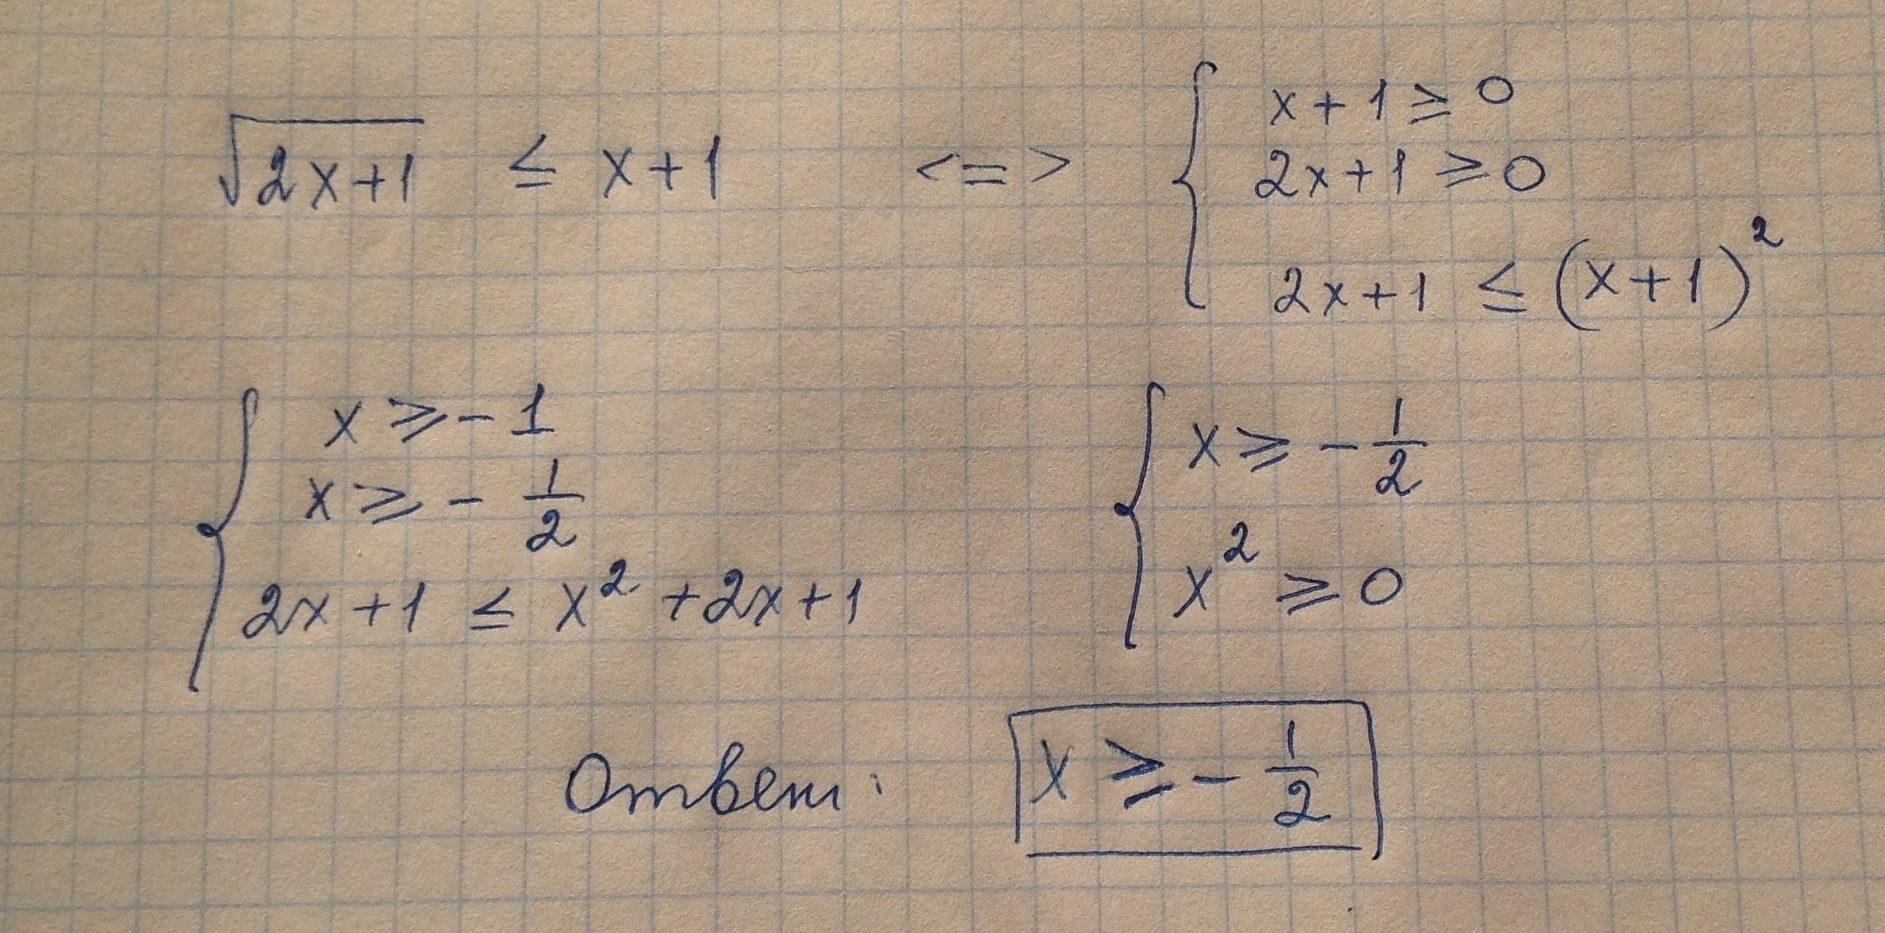 √(2x+1) ≤ x+1 <=> { x+1 ≥ 0
2x+1 ≥ 0
2x+1 ≤ (x+1)²
{ x ≥ -1
x ≥ - 1/2
2x+1 ≤ x² +2x+1
{ x ≥ - 1/2
x² ≥ 0
Ответ: x ≥ - 1/2